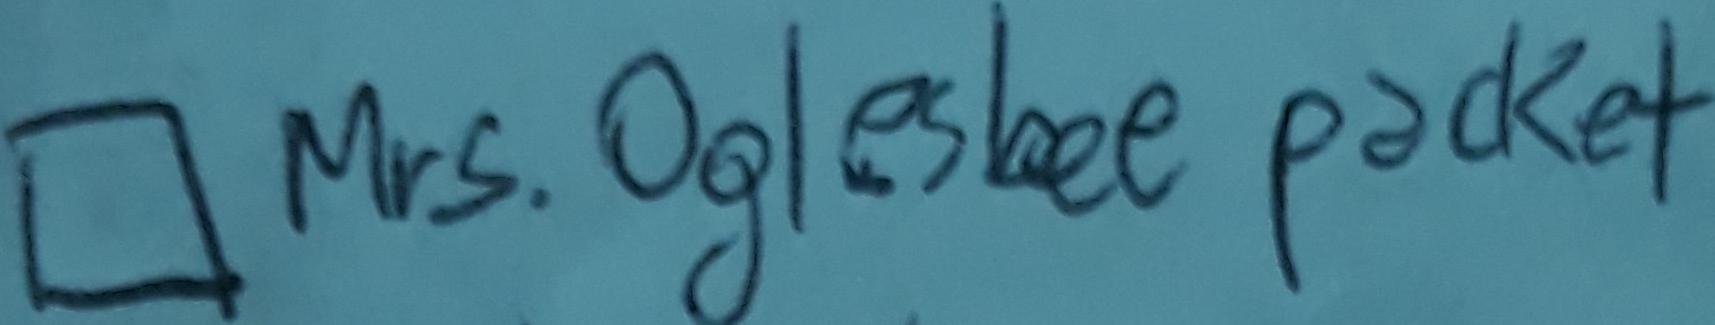 Mrs. Oglesbee packet